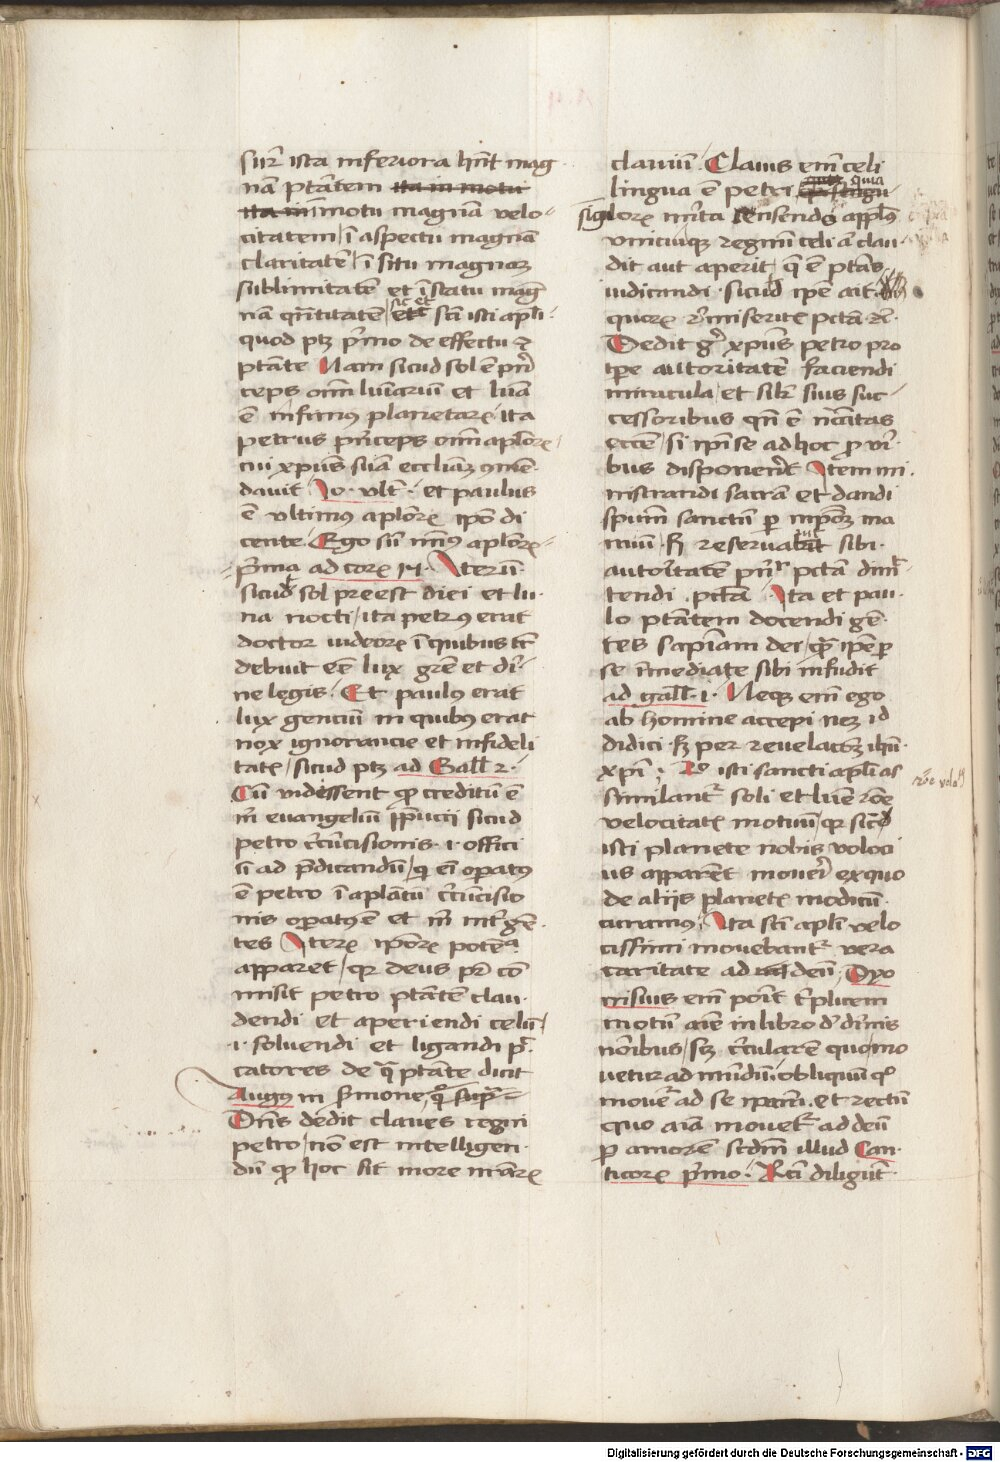 sup̄ ista inferiora hn̄t mag
nā ptātem ita in motu
ita in ī motu magnā velo-
citatem / ī aspectu magnā
claritatē / ī situ magnaꝫ
sublimitatē et ī statu mag
nā qn̄titatē / sic et sc̄i isti apl̓i
quod ptꝫ p̓mo de effectu ⁊
ptāte Nam sicud sol ē prī
ceps om̄ lunariū et luna
ē infimus planetarꝫ ita
petrus prīceps om̄ aplorꝫ
cui xp̄us suā eccliaꝫ ꝯmē-
davit Jo. vlt̄. et paulus
ē vltimus aplorꝫ ip̄o di
cente. Ego sū mīmꝰ aplorꝫ
p̓ma ad corꝫ 14. Iterū
sicud sol preest diei et lu-
na nocti / ita petrus erat
doctor iudeorꝫ ī quibus tc̄
debuit eē lux grē et di-
ne legis. Et paulus erat
lux genciū in quibus erat
nox ignorancie et infideli
tatꝫ / sicud ptꝫ ad Gall 2.
Cū vidissent qꝫ creditū ē
m̄ evangeliū p̄pucii sicud
petro circūcisionis .i. offici
ū ad p̄dicandū / qi em̄ opatꝰ
ē petro ī aplatū circūcisio
nis opatꝰ ē et m̄ int̄ gē-
tes Iterꝫ ip̄orꝫ potē
apparet / qꝫ deus pꝛ cō
misit petro ptātē clau-
dendi et aperiendi celū /
.i. soluendi et ligandi pc̄-
catores de qͣ ptāte dicit
Augus in s̓mone, qͣ supͣ
Dn̄s dedit claues regni
petro / nō est intelligen-
dū qꝫ hoc sit more nr̄arꝫ
clauiū. Clauis em̄ celi
lingua ē petri quia
sigilorꝫ mērita censendo appl̓us
vnicuiqꝫ regnū celi aū clau-
dit aut aperit / qͣ ē ptās
iudicandi. sicud ip̄e ait.
quorꝫ r̓miseritꝫ pctā rē.
Dedit gͦ xp̄us petro pro
tp̄e autoritatē faciendi
miracula / et sil̓r suis suc-
cessoribus qn̄ ē nc̄citas
eccē / si ip̄i se ad hoc p vir̓-
bus disponerēt Item mi-
nistrandi sacrā et dandi
spūm sanctū p inpōeꝫ ma
nuū. sꝫ reseruauit sibi
autoritatē prīꝰ pctā dimi̓t-
tendi. pctā. Ita et pau-
lo ptātem docendi gē-
tes sapīam dei, quā ip̄e p
se īmediate sibi infudit
ad gall. 1. Neqꝫ em̄ ego
ab homine accepi neꝫ id
didici sꝫ per reuelacōꝫ ihū
xp̄i. 2ͦ isti sancti apl̓i as
similant̄ soli et lune rōne
velocitatꝫ motuū / qꝫ sicud
isti planete nobis veloci
us apparēt moueri exquo
de alijs planetꝫ modicū
curamus, Ita sc̄i apl̓i velo
cissimi mouebant̄ vera
caritate ad deū, Dyo
nisius em̄ poīt t̓plicem
motū aīe in libro d̓ diuīs
noībus / sꝫ circularē quo mo
uetur ad mūdū. obliquū qͦ
mouet̄ ad se ipam. et rectū
quo aīa mouet̄ ad deū
p amorē scdm̄ illud Can-
ticorꝫ p̓mo. Recti diligūt